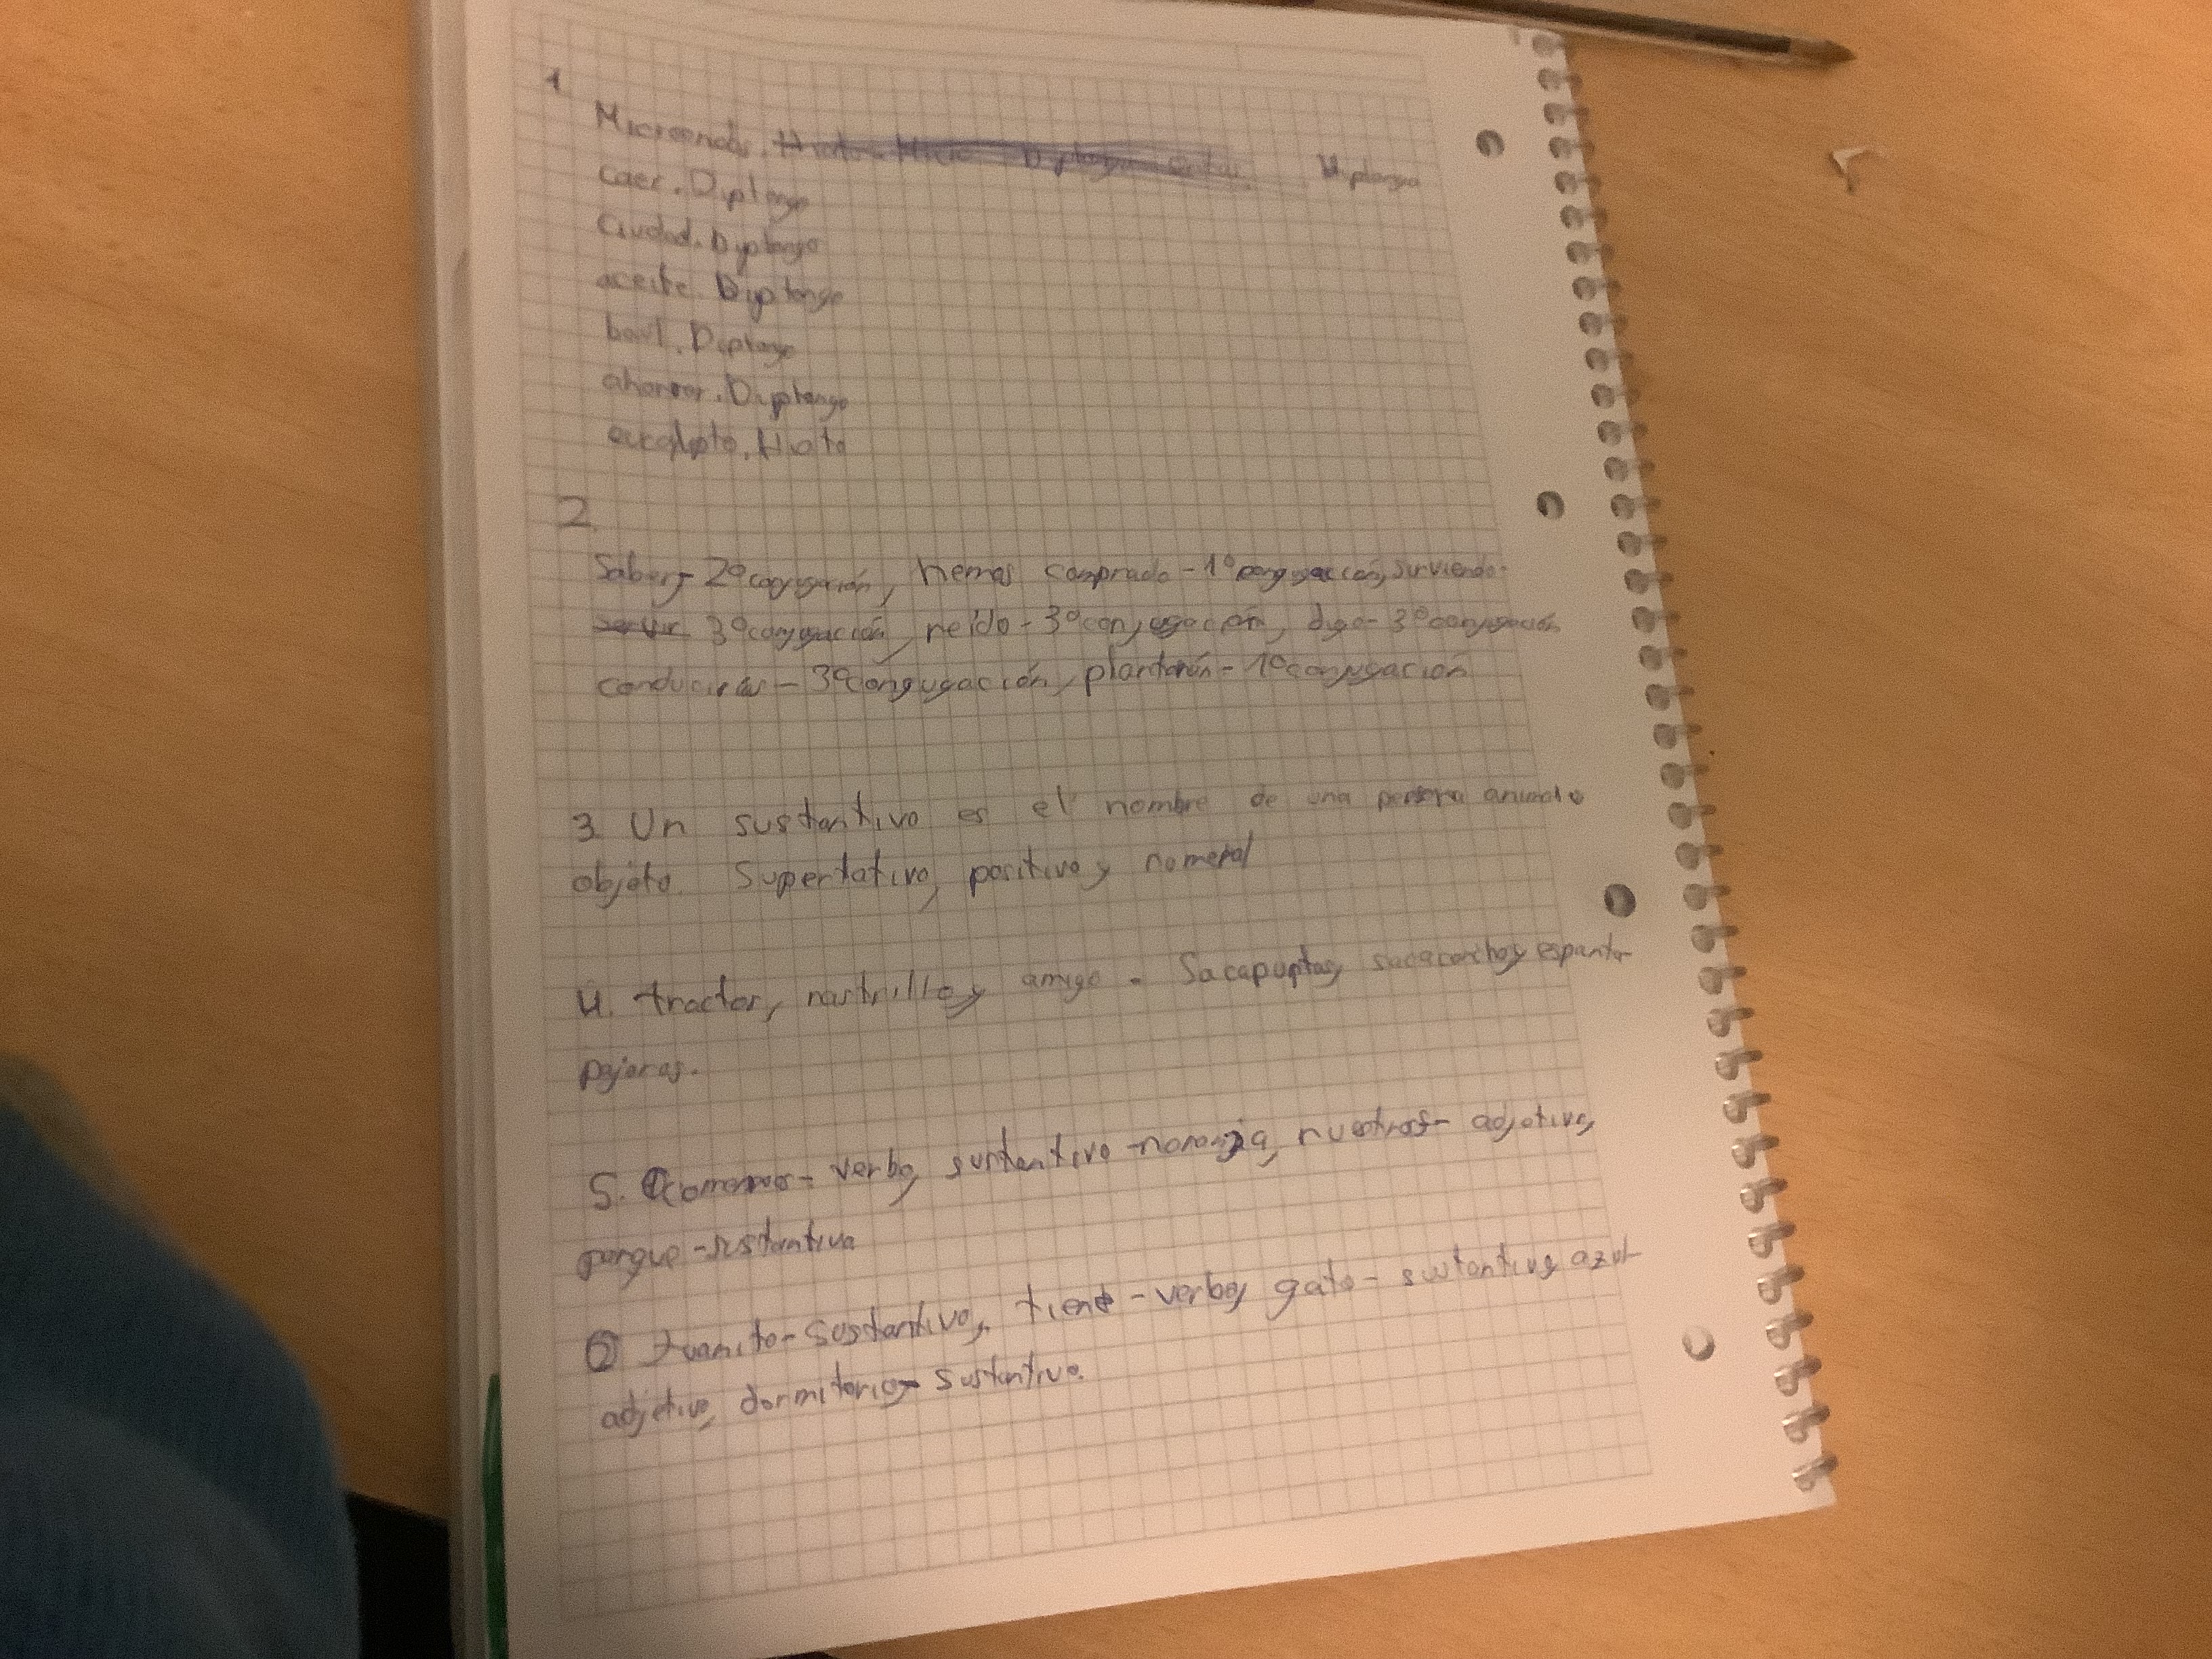 1
Microondas. Diptongo
caer. Diptongo
Ciudad. Diptongo
aceite Diptongo
baúl. Diptongo
ahorrar. Diptongo
eucalipto. Hiato
2
Saber - 2º conjugación, hemos comprado - 1º congugación, sirviendo -
servir 3º conjugación, reído - 3º conjugación, digo - 3º conjugación
conducirás - 3º congugación, plantarán - 1º conjugación
3. Un sustantivo es el nombre de una persona animal o
objeto. Superlativo, positivo y
4. tractor, rastrillo y amigo. Sacapuntas, sacacorchos y espanta-
pajaros.
5. comemos - verbo, sustantivo - naranja, nuestros - adjetivo,
parque - sustantivo
6 Juanito - sustantivo, tiene - verbo, gato - sustantivo, azul -
adjetivo, dormitorio - sustantivo.